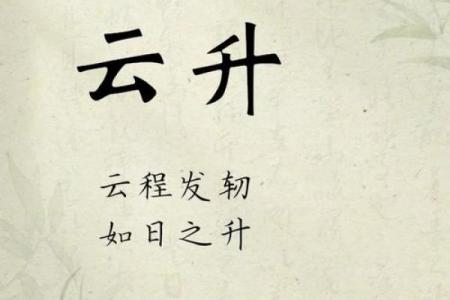 云升
云程发轫
如日之升